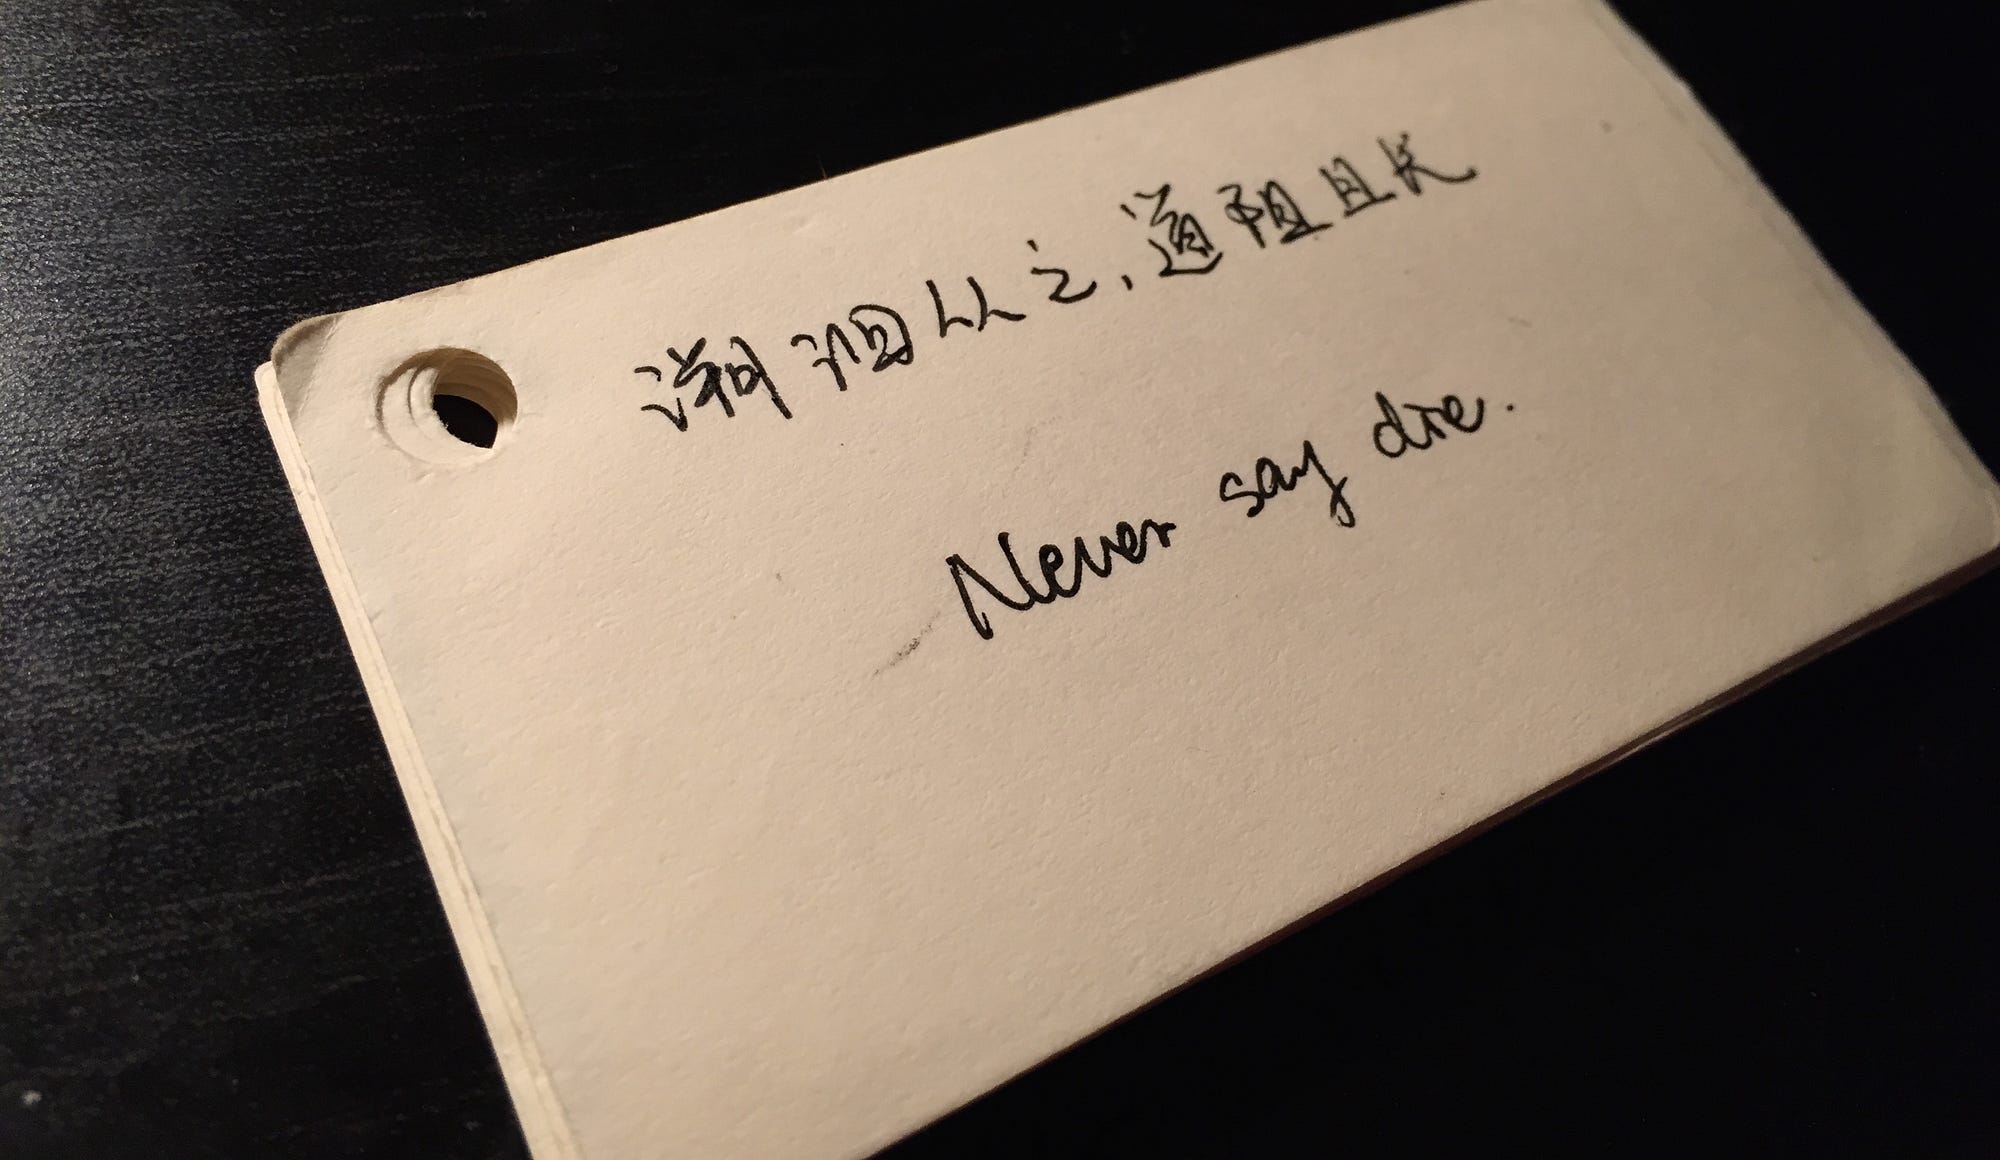 溯洄从之,道阻且长
Never say die.